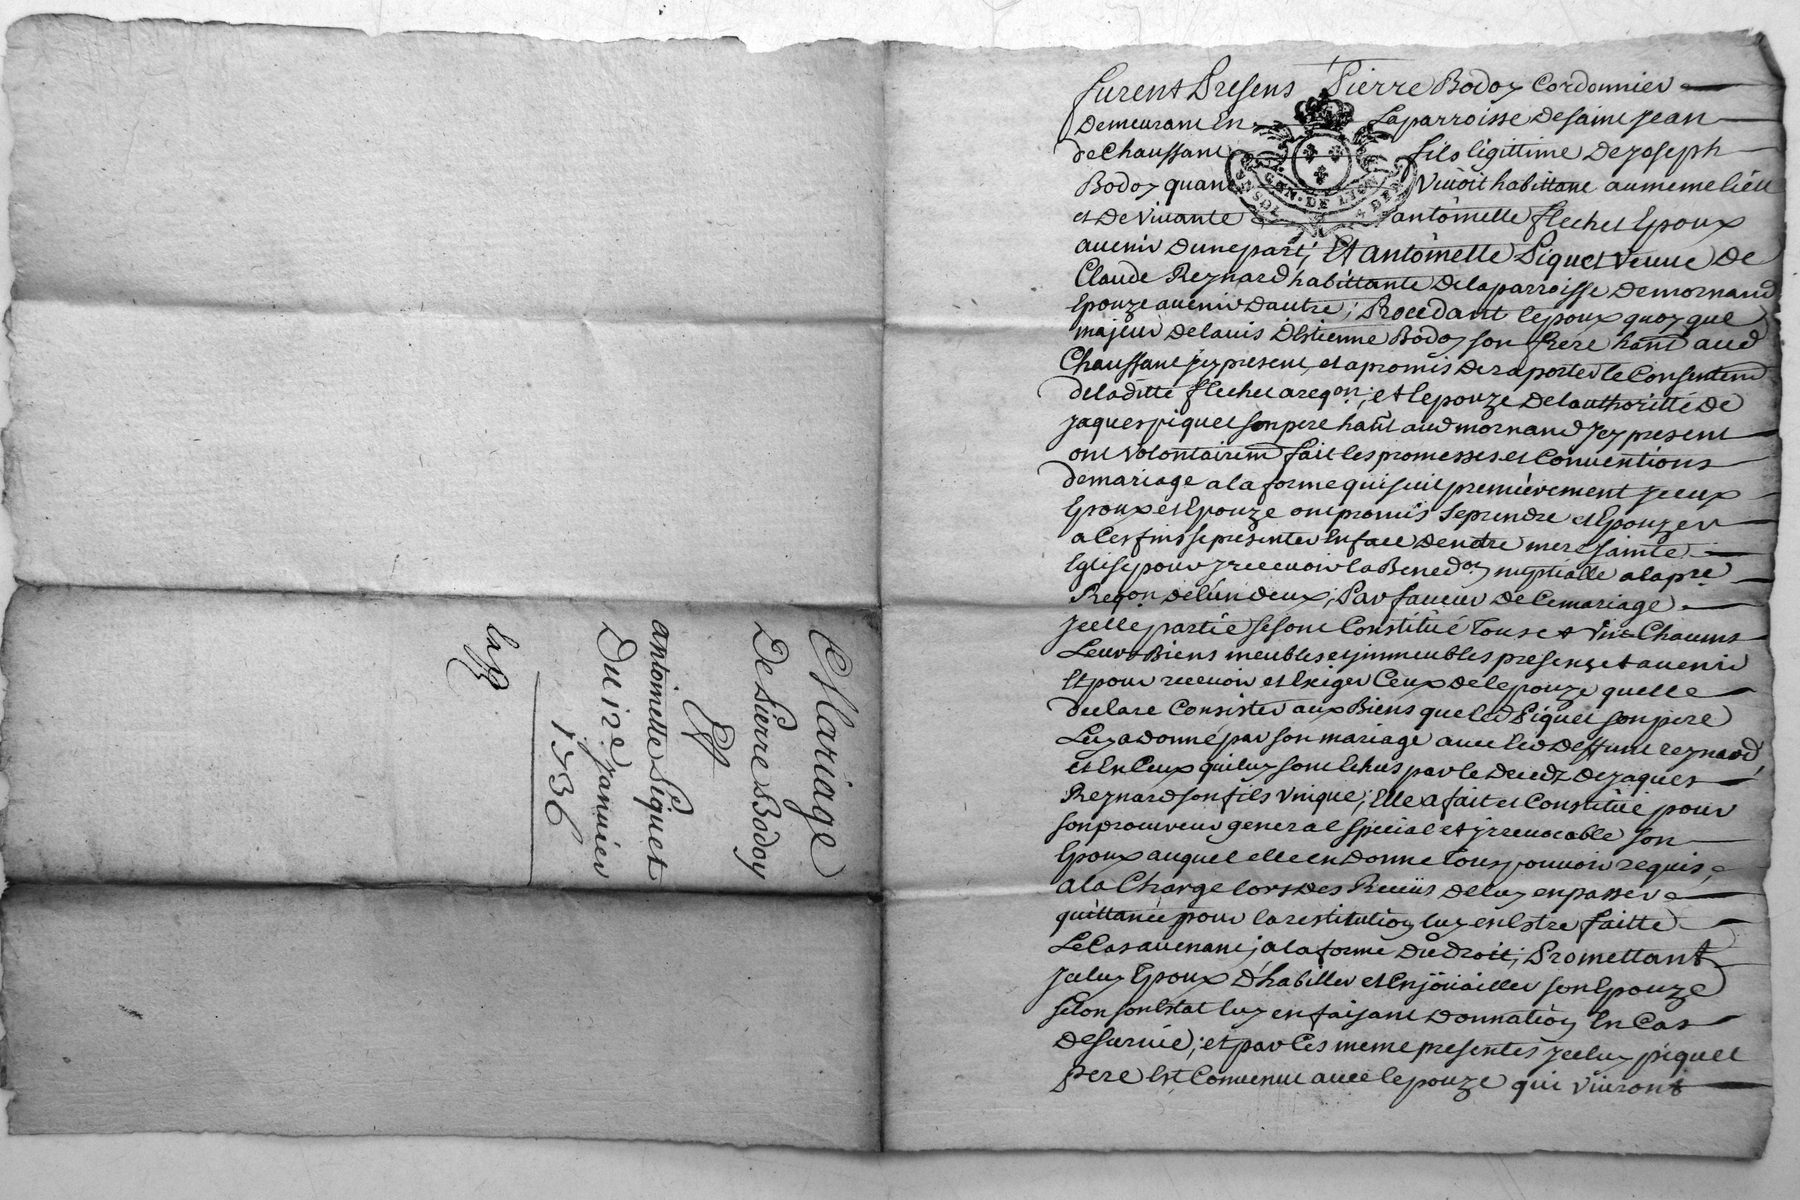 Mariage
De Pierre Bodoy
Et
antoinette Piquet
Du 12e janvier
1736
furent Presens Pierre Bodoy Cordonnier
Demeurant En Laparroisse de saint Jean
de Chaussant fils ligittime De joseph
Bodoy quant Vivoit habittant aumeme lieu
et De Vivante antoinette flechet Epoux
avenir Dunepart; Et antoinette Piquet veuve De
Claude Reynard habittante Delaparroisse De mornand
Epouze avenir Dautre; Procedant lepoux quoy que
majeur Delavis DEstienne Bodoy son frere hant aud
Chaussant jcy present, et apromis De raporter le Consentemt
deladitte flechet areqon; et lepouze Delauthoritté De
jaques piquet son pere hant aud mornand Jcy present
ont volontairemt fait les promesses et Conventions
demariage ala forme quisuit premièrement jceux
Epoux et Epouze ont promis seprendre et Epouzer
a Ces fins sepresenter En face De notre mere sainte
Eglise pour y recevoir la Benedon nuptialle alapre
Reqon De lun deux; Par faveur De Cemariage
jcelle partie se sont Constitué Tous et Uns Chacuns
Leurs Biens meubles et jmmeubles presens et avenir
Et pour recevoir et Exiger Ceux de lepouze quelle
declare Consister aux Biens que led Piquet son pere
Luy adonné par son mariage avec led Deffunt reynard,
et En Ceux qui luy sont Echus par le Decedz De jaques
Reynard son fils Unique; Elle a fait et Constitué pour
son procureur general special et jrrevocable son
Epoux auquel elle en Donne Tous pouvoir requis,
ala Charge lors des Reçus De luy en passer
quittance pour la restitution luy en Estre faitte
Le Cas avenant, ala forme Du Droit; Promettant
jceluy Epoux D'habiller et Enjouailler son Epouze
selon son Estat luy en faisant Donnation En Cas
De survie; et par Ces meme presentes jceluy piquet
pere Est Convenu avec lepouze qui Vivront